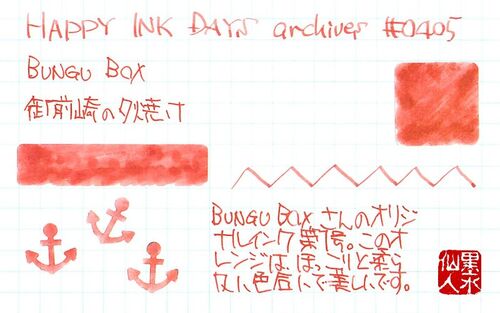 HAPPY INK DAYS archives #0405
BUNGU BOX
御前崎の夕焼け
BUNGU BOXさんのオリジ
ナルインク第1号。このオ
レンジは、ほっこりと柔ら
かい色合いで美しいです。
墨水
仙人